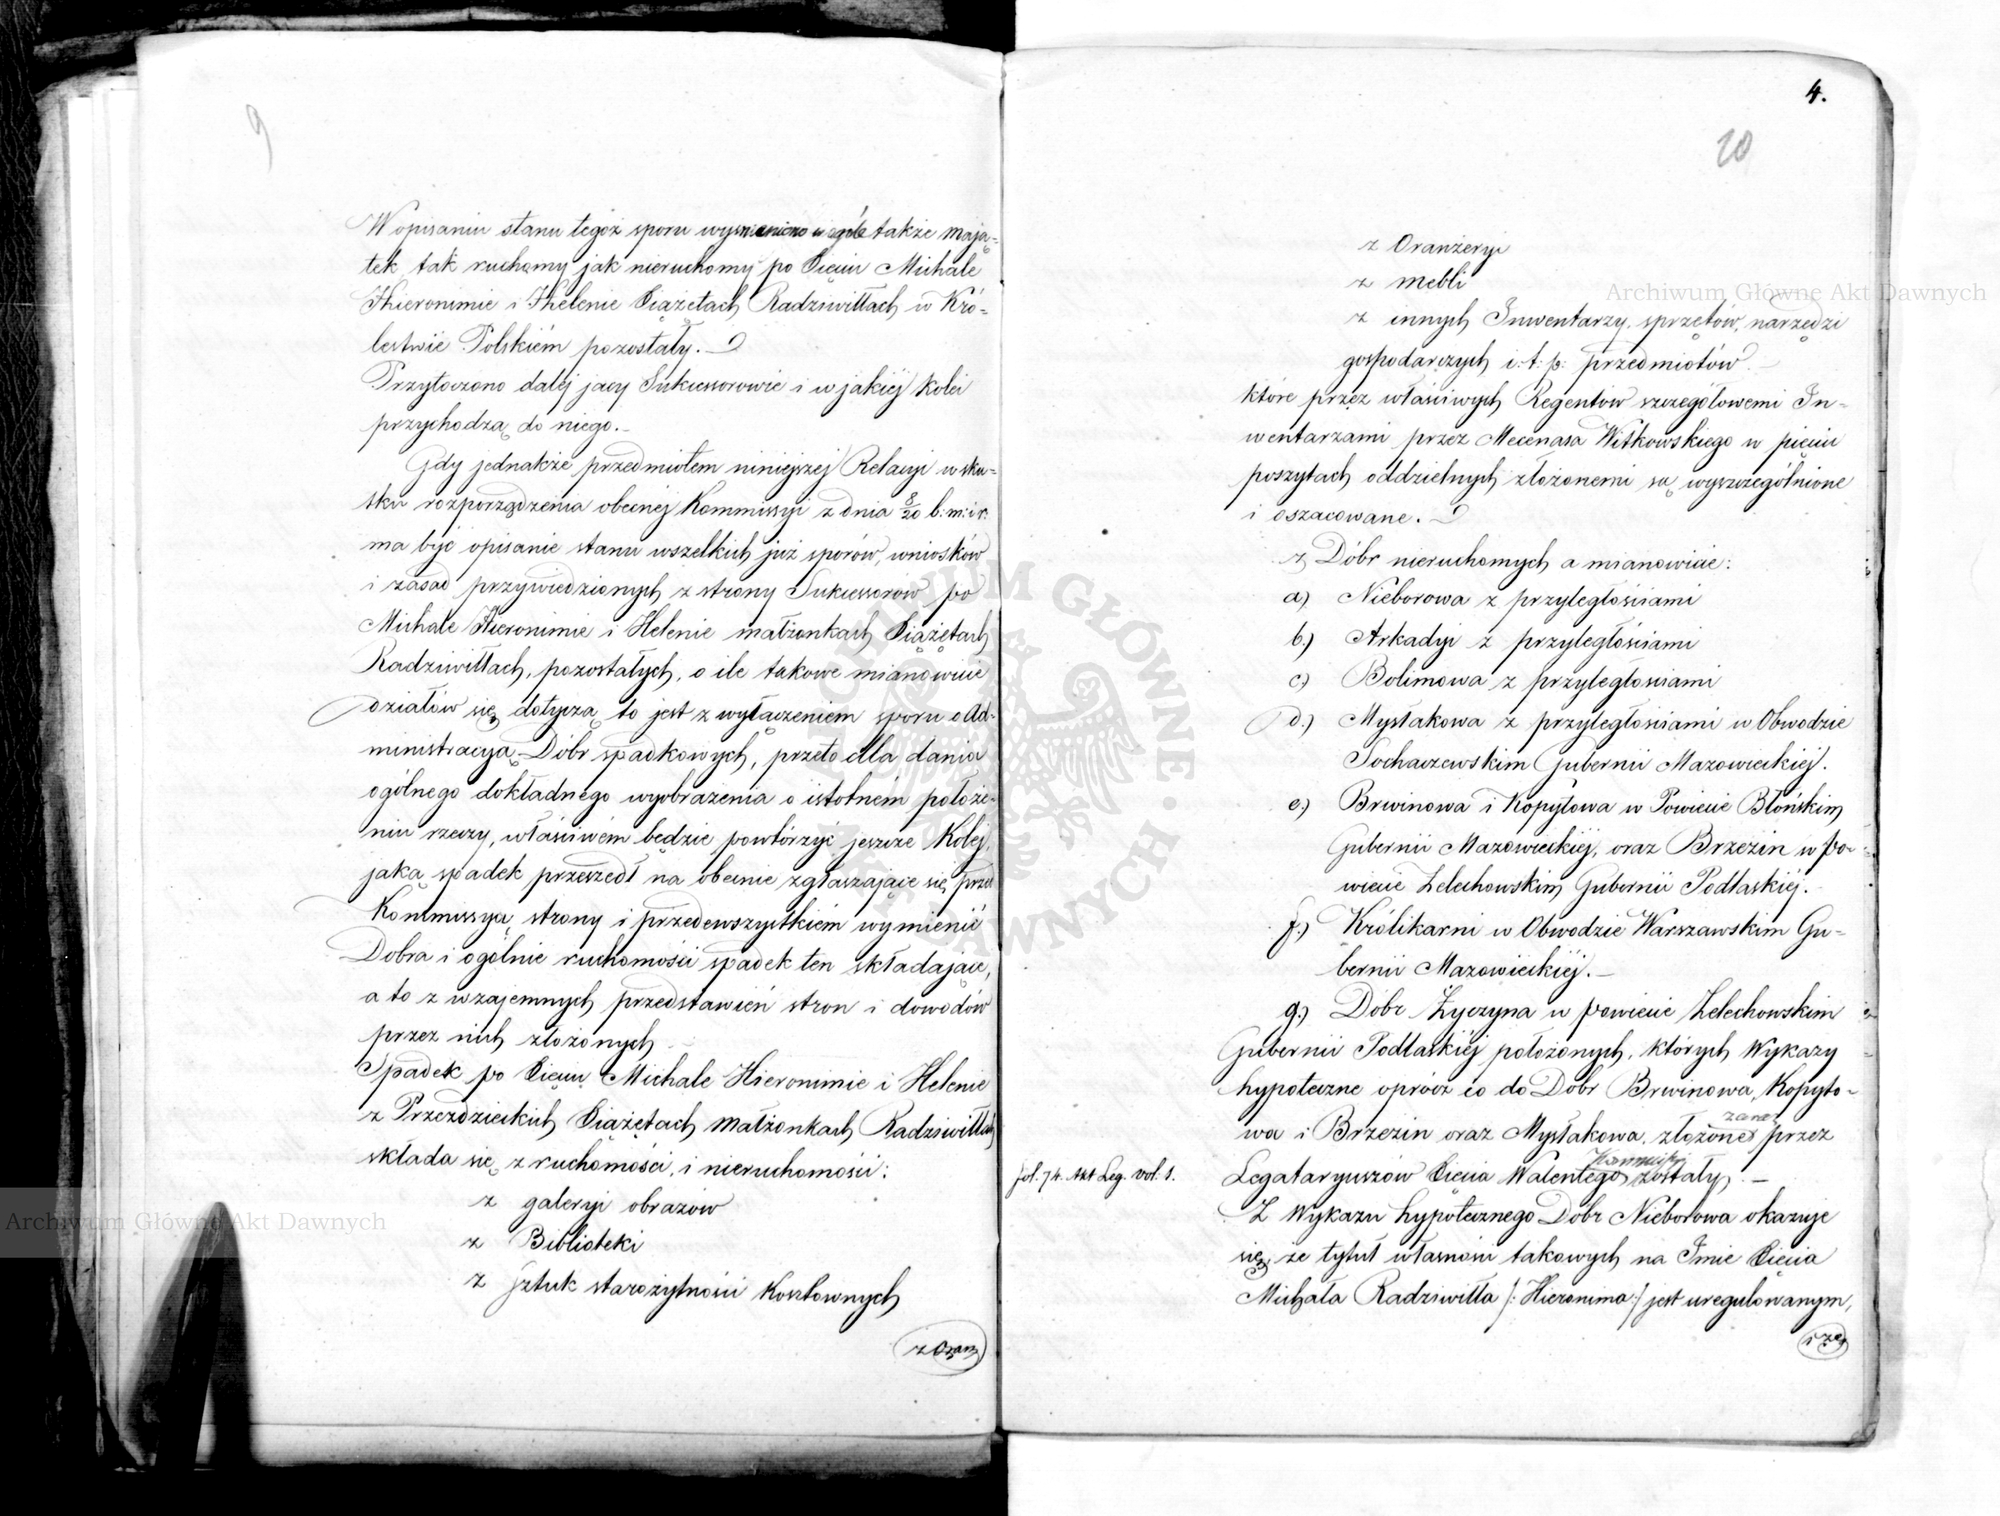 9
W opisaniu stanu tegoż sporu wymieniono w ogóle także mają=
tek tak ruchomy jak nieruchomy po Xięciu Michale
Hieronimie i Helenie Xiążętach Radziwiłłach w Kró=
lestwie Polskiém pozostały.
Przytoczono daléj jacy Sukcessorowie i w jakiéj kolei
przychodzą do niego.
Gdy jednakże przedmiotem niniejszéj Relacyi w sku=
tku rozporządzenia obecnéj Kommissyi z dnia 8/20 b: m: i r:
ma być opisanie stanu wszelkich już sporów, wniosków
i zasad przywiedzionych z strony Sukcessorów po
Michale Hieronimie i Helenie małżonkach Xiążętach
Radziwiłłach, pozostałych, o ile takowe mianowicie
działów się dotyczą to jest z wyłączeniem sporu o Ad=
ministracyą Dóbr spadkowych, przeto dla dania
ogólnego dokładnego wyobrażenia o istotném położe=
niu rzeczy, właściwém będzie powtórzyć jeszcze Koléj,
jaką spadek przeszedł na obecnie zgłaszające się przed
Kommissyą strony i przedewszystkiém wymienić
Dobra i ogólnie ruchomości spadek ten składające,
a to z wzajemnych przedstawień stron i dowodów
przez nich złożonych
Spadek po Xięciu Michale Hieronimie i Helenie
z Przezdzieckich Xiążętach małżonkach Radziwiłłach
składa się z ruchomości i nieruchomości:
z galeryi obrazów
z Biblioteki
z sztuk starożytności kosztownych
z Oranż
4.
10
z Oranżeryi
z mebli
z innych Inwentarzy, sprzętów, narzędzi
gospodarczych i. t: p: przedmiotów.
które przez właściwych Regentów szczegółowemi In=
wentarzami przez Mecenasa Witkowskiego w pięciu
poszytach oddzielnych złożonemi są wyszczególnione
i oszacowane.
z Dóbr nieruchomych a mianowicie:
a) Nieborowa z przyległościami
b.) Arkadyi z przyległościami
c) Bolimowa z przyległościami
d.) Mysłakowa z przyległościami w Obwodzie
Sochaczewskim Gubernii Mazowieckiéj.
e.) Brwinowa i Kopytowa w Powiecie Błońskim
Gubernii Mazowieckiéj, oraz Brzezin w po=
wiecie Żelechowskim Gubernii Podlaskiéj.
f.) Królikarni w Obwodzie Warszawskim Gu=
bernii Mazowieckiéj.
g.) Dóbr Życzyna w powiecie Żelechowskim
Gubernii Podlaskiéj położonych, których Wykazy
hypoteczne oprócz co do Dóbr Brwinowa, Kopyto=
wa i Brzezin oraz Mysłakowa, złożone przez
fol. 74. Akt Leg. vol: 1.
Legataryuszów Xięcia Walentego zostały.
Z Wykazu hypotecznego Dóbr Nieborowa okazuje
się że tytuł własności takowych na Imie Xięcia
Michała Radziwiłła /: Hieronima :/ jest uregulowanym,
i że
Archiwum Główne Akt Dawnych
Archiwum Główne Akt Dawnych
ARCHIWUM GŁÓWNE AKT DAWNYCH